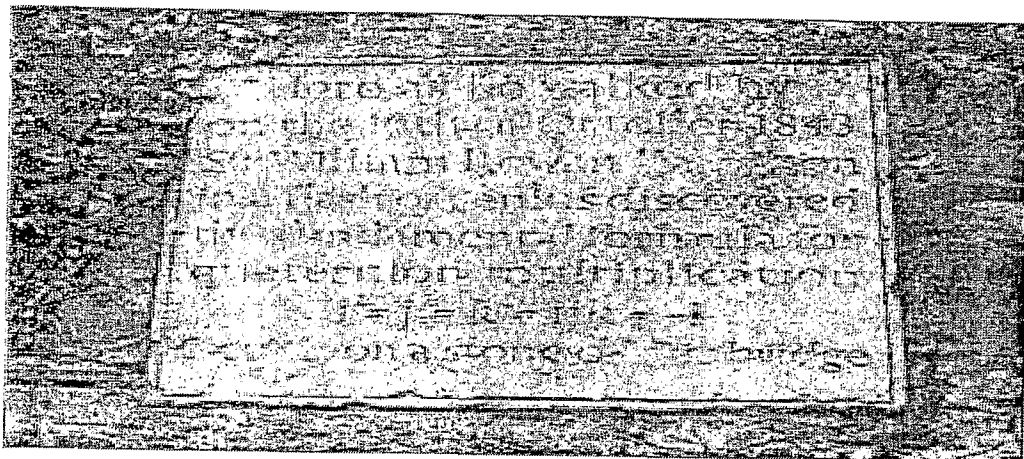 Here as he walked by
on the 16th of October 1843
Sir William Rowan Hamilton
in a flash of genius discovered
the fundamental formula for
quaternion multiplication
i² = j² = k² = i j k = −1
on a stone of this bridge